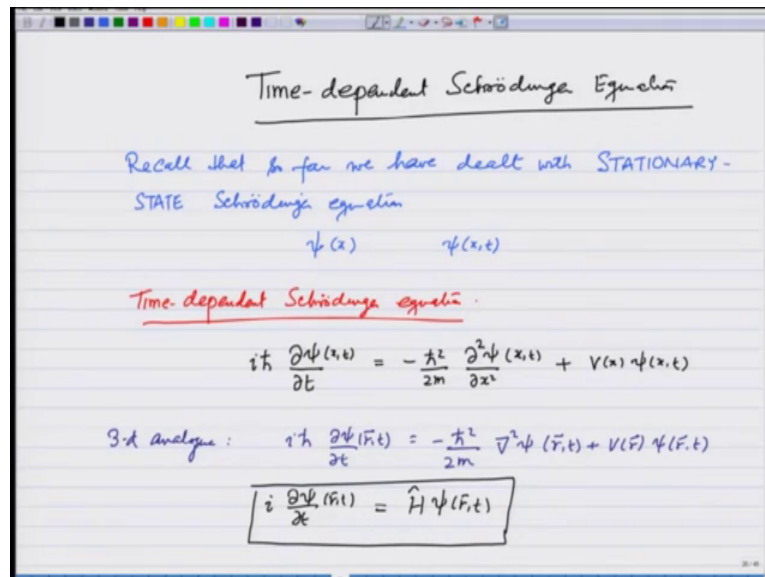 Time-dependent Schrödinger Equation
Recall that so far we have dealt with STATIONARY-
STATE Schrödinger equation
ψ(x) ψ(x,t)
Time-dependent Schrödinger equation.
iħ ∂ψ(x,t)/∂t = -ħ²/2m ∂²ψ(x,t)/∂x² + V(x) ψ(x,t)
3-d analogue: iħ ∂ψ(r̄,t)/∂t = -ħ²/2m ∇²ψ(r̄,t) + V(r̄) ψ(r̄,t)
i ∂ψ(r̄,t)/∂t = Ĥ ψ(r̄,t)